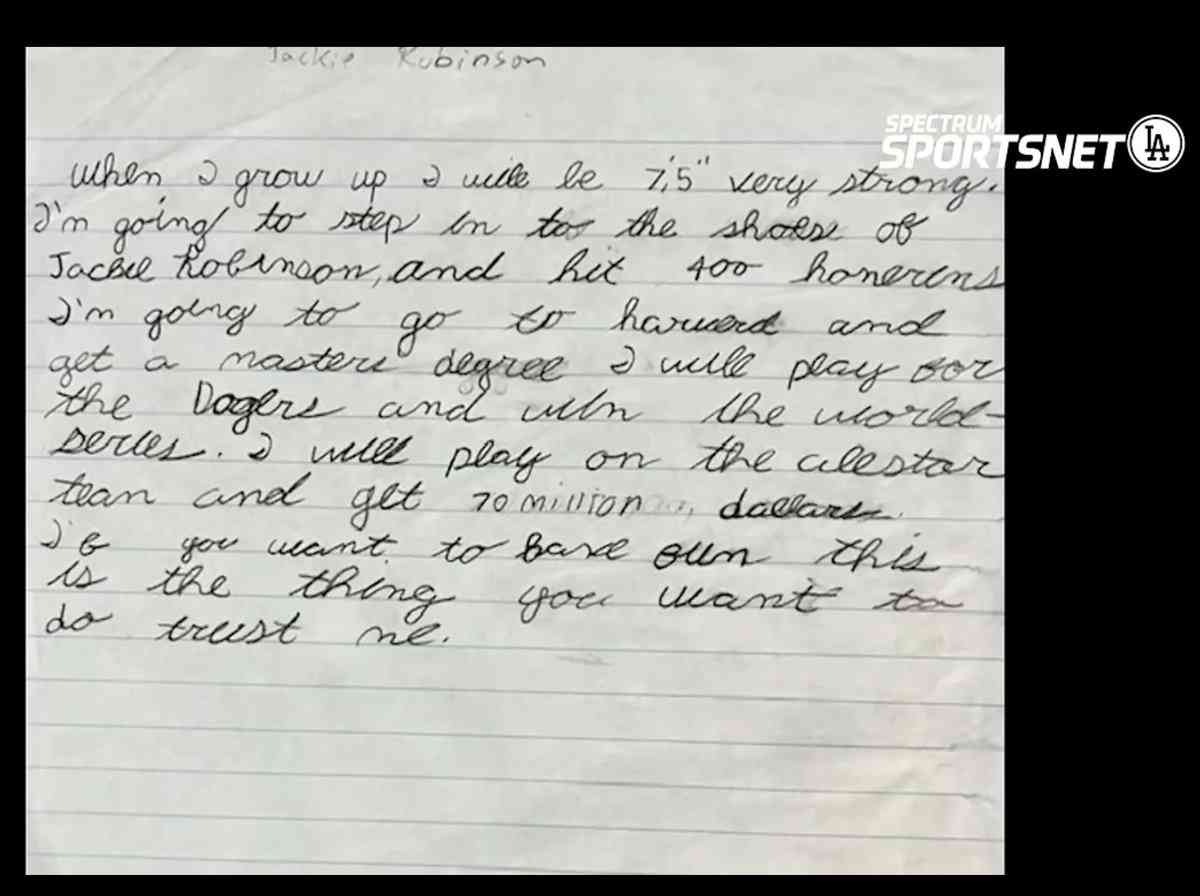 Jackie Robinson
SPECTRUM
SPORTSNET LA
When I grow up I will be 7'5" very strong.
I'm going to step in to the shoes of
Jackie Robinson, and hit 400 homeruns
I'm going to go to harverd and
get a masters degree I will play for
the Dogers and win the world-
series. I will play on the allstar
team and get 70 million dallars.
If you want to have fun this
is the thing you want to
do trust me.